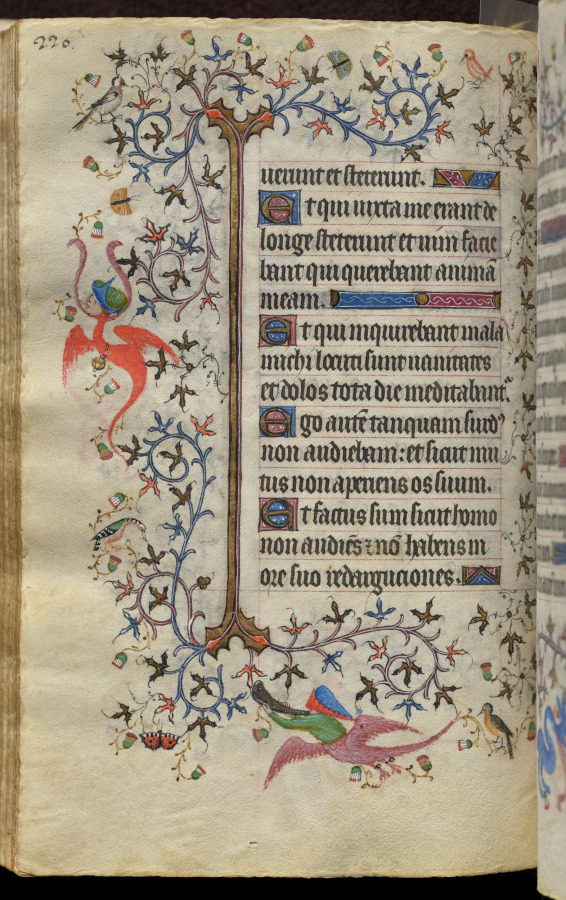 226.
uerunt et steterunt.
Et qui iuxta me erant de
longe steterunt et uim facie
bant qui querebant animā
meam.
Et qui inquirebant mala
michi locuti sunt uanitates
et dolos tota die meditabantᷣ
Ego autē tanquam surdꝰ
non audiebam: et sicut mu
tus non aperiens os suum.
Et factus sum sicut homo
non audiēs ⁊ nō habens in
ore suo redarguciones.